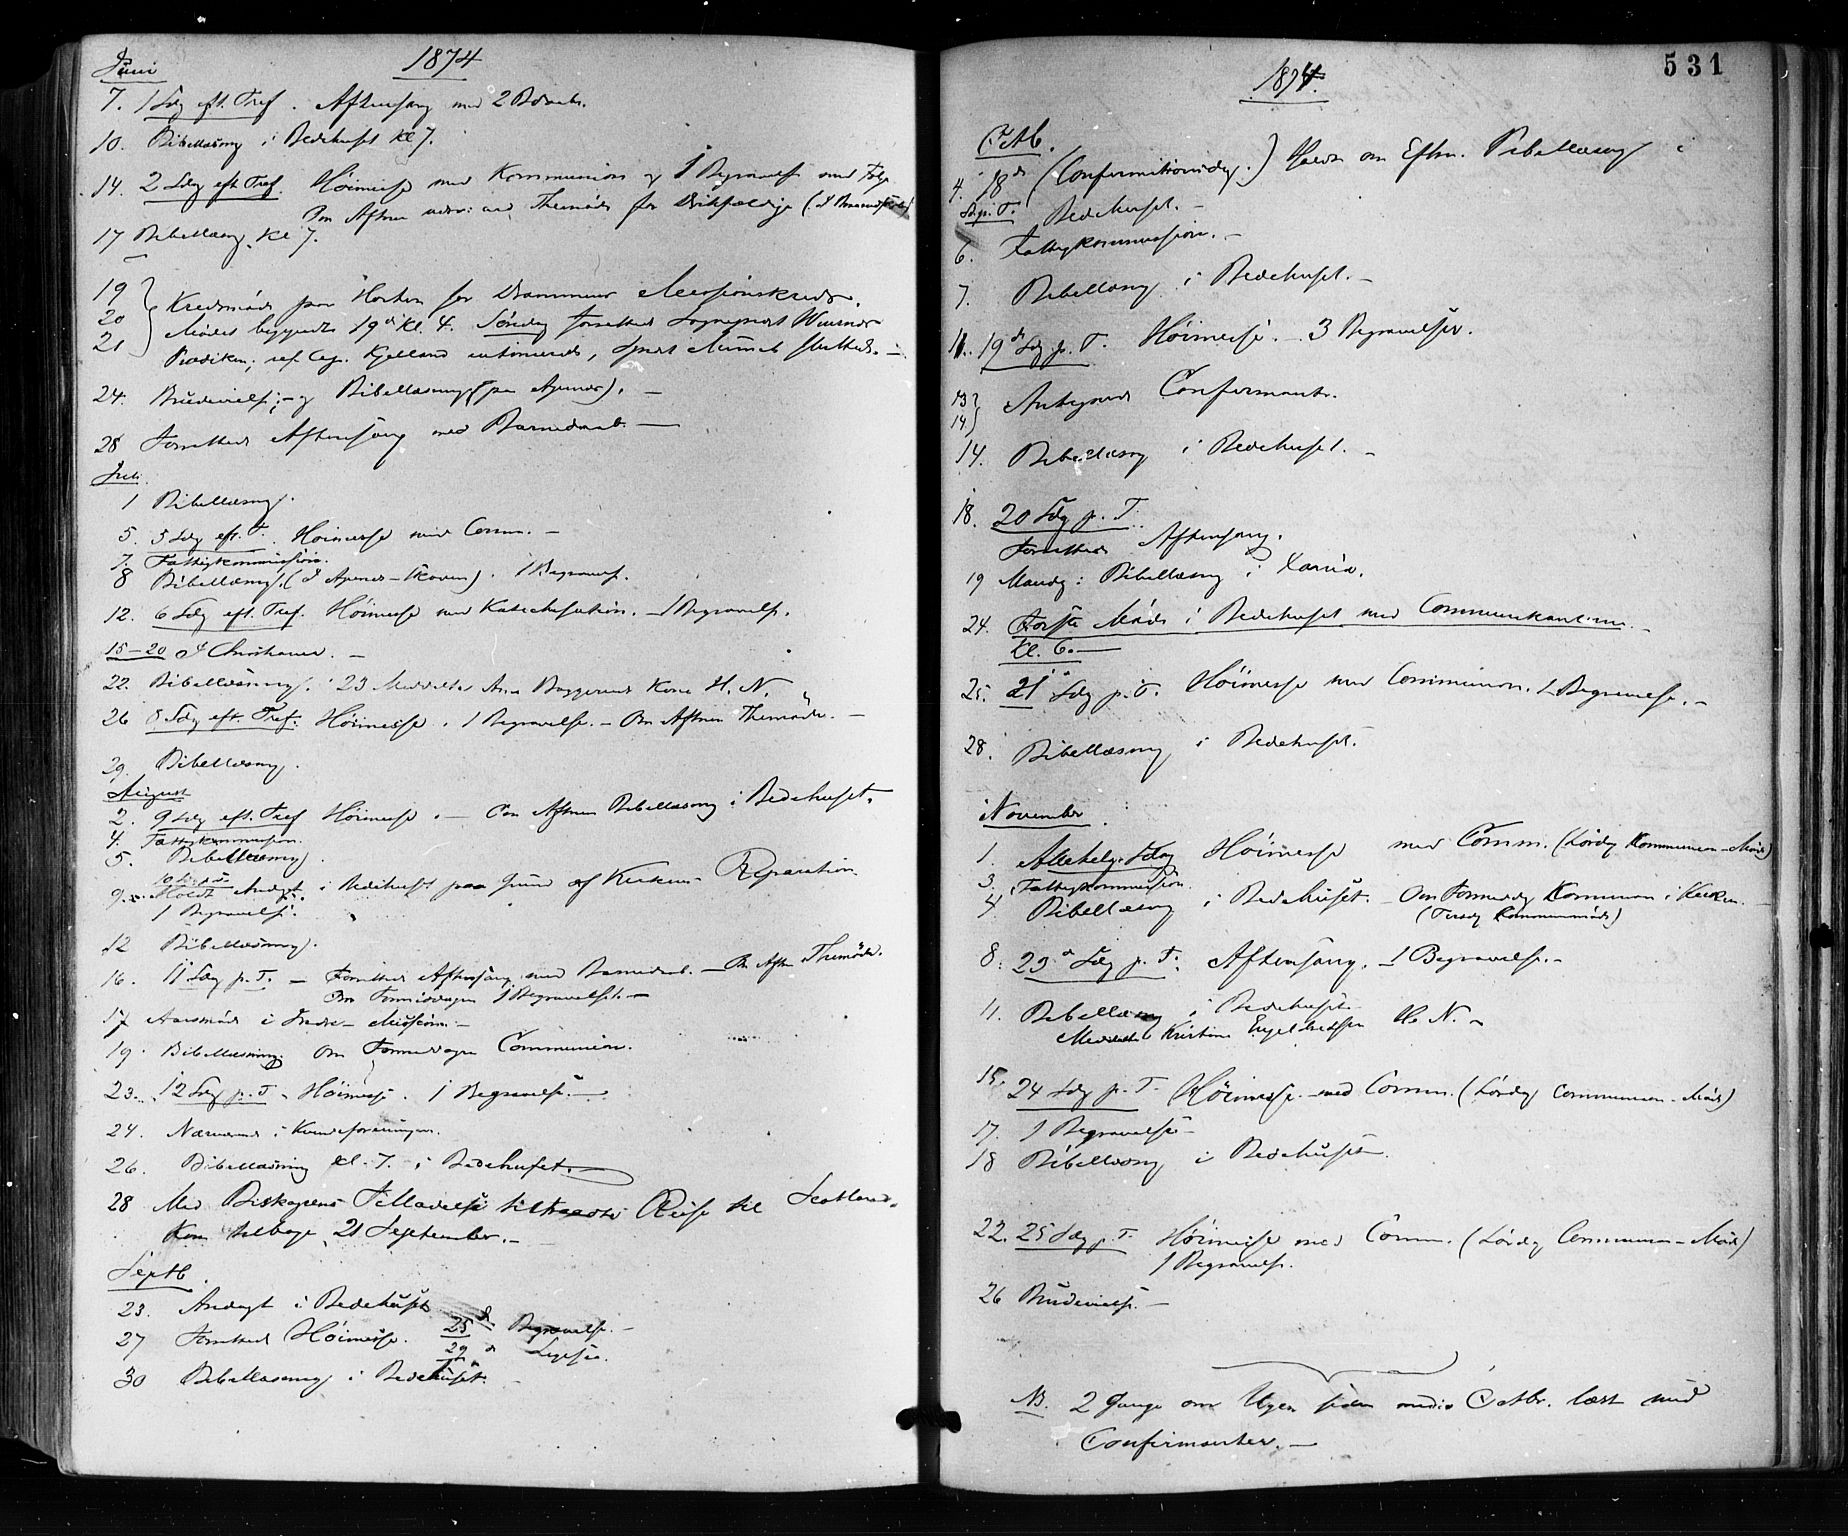 Juni 1874
7. 1 Sdg eft. Tref. Aftensang med 2 Barneb.
10. Bibellæsng i Bedehuset Kl 7.
14. 2 Sdg eft Tref. Höimesse med Kommunion og 1 Begravelse med Følge
Om Aftnen Themöde for
17 Bibellæsng. Kl 7.
19
20
21
Kredsmöde paa Horten for Drammens Missionskreds.
Mödet begyndte 19de Kl. 4. Söndag forrettede Sognepræst
Prædiken; ref. Cap. Kjelland
24. Brudevielse; og Bibellæsng (paa Agenæs). —
28 Forrettede Aftensang med Barnedaab. —
Juli.
1 Bibellæsng.
5. 5 Sdg eft. T. Höimesse med Comm. —
7. Fattigkommission.
8 Bibellæsng. (I Agenæs-Skoven). 1 Begravels.
12. 6 Sdg eft. Tref. Höimesse med Katechisation. — 1 Begravelse.
15—20 I Christiania. —
22. Bibellæsning. 23 Meddeltes Kone H. N.
26 8 Sdg eft. Tref. Höimesse. 1 Begravelse. — Om Aftnen Themöde. —
29. Bibellæsng.
August
2. 9 Sdg eft. Tref Höimesse. — Om Aftnen Bibellæsng i Bedehuset.
4. Fattigkommission.
5. Bibellæsng.
9. 10 S. p. T. Holdt Andagt i Bedehuset paa Grund af Kirkens Reparation
1 Begravelse.
12 Bibellæsng.
16. 11 Sdg p. T. — Forrettede Aftensang med Barnedaab. — Om Aftn Themöde.
Om Formiddagen 1 Begravelse. —
17 Aarsmöde i Indre-Mission. —
19. Bibellæsning. Om Formiddagen Communion.
23. 12 Sdg p. T. Höimesse. 1 Begravelse. —
24. Nærværende i Kvindeforeningen.
26. Bibellæsning kl. 7. i Bedehuset. —
28 Med Biskopens Tilladelse tiltraadte Reise til Scotland.
Kom tilbage 21 September. —
Septb.
23. Andagt i Bedehuset
27 Forrettede Höimesse. 25 d. Begravelse. —
29 d
30 Bibellæsning i Bedehuset.
531
1874.
Octb.
4. 18de (Confirmationsdag.) Holdt om Eftm. Bibellæsng i
S. p. T. Bedehuset. —
6. Fattigkommission. —
7. Bibellæsng i Bedehuset. —
11. 19de Sdg p. T. Höimesse. — 3 Begravelser.
13
14
Antegnede Confirmanter.
14. Bibellæsng i Bedehuset. —
18. 20 Sdg p. T.
Forrettede Aftensang.
19 Mandg: Bibellæsng i
24. Förste Möde i Bedehuset med Communikanterne. —
Kl. 6. —
25. 21 Sdg p. T. Höimesse med Communion. 1 Begravelse. —
28. Bibellæsng i Bedehuset.
November.
1. Allehelg. Sdag Höimesse med Comm. (Lördg Kommunion-Möde)
3. Fattigkommission.
4 Bibellæsng i Bedehuset. Om Formiddg Kommunion i Kirken. —
(Tirsdg Communmöde)
8. 23d Sdg p. T. Aftensang. — 1 Begravelse. —
11. Bibellæsng i Bedehuset
Meddeelte Kristine Engelbretsen H. N. —
15. 24 Sdg p. T. Höimesse med Comm. (Lördg Communion-Möde)
17. 1 Begravelse —
18 Bibellæsng i Bedehuset.
22. 25 Sdg p. T. Höimesse med Comm. (Lördg Communion-Möde)
1 Begravelse.
26 Brudevielse. —
NB. 2 Gange om Ugen siden medio Octbr. læst med
Confirmanter. —